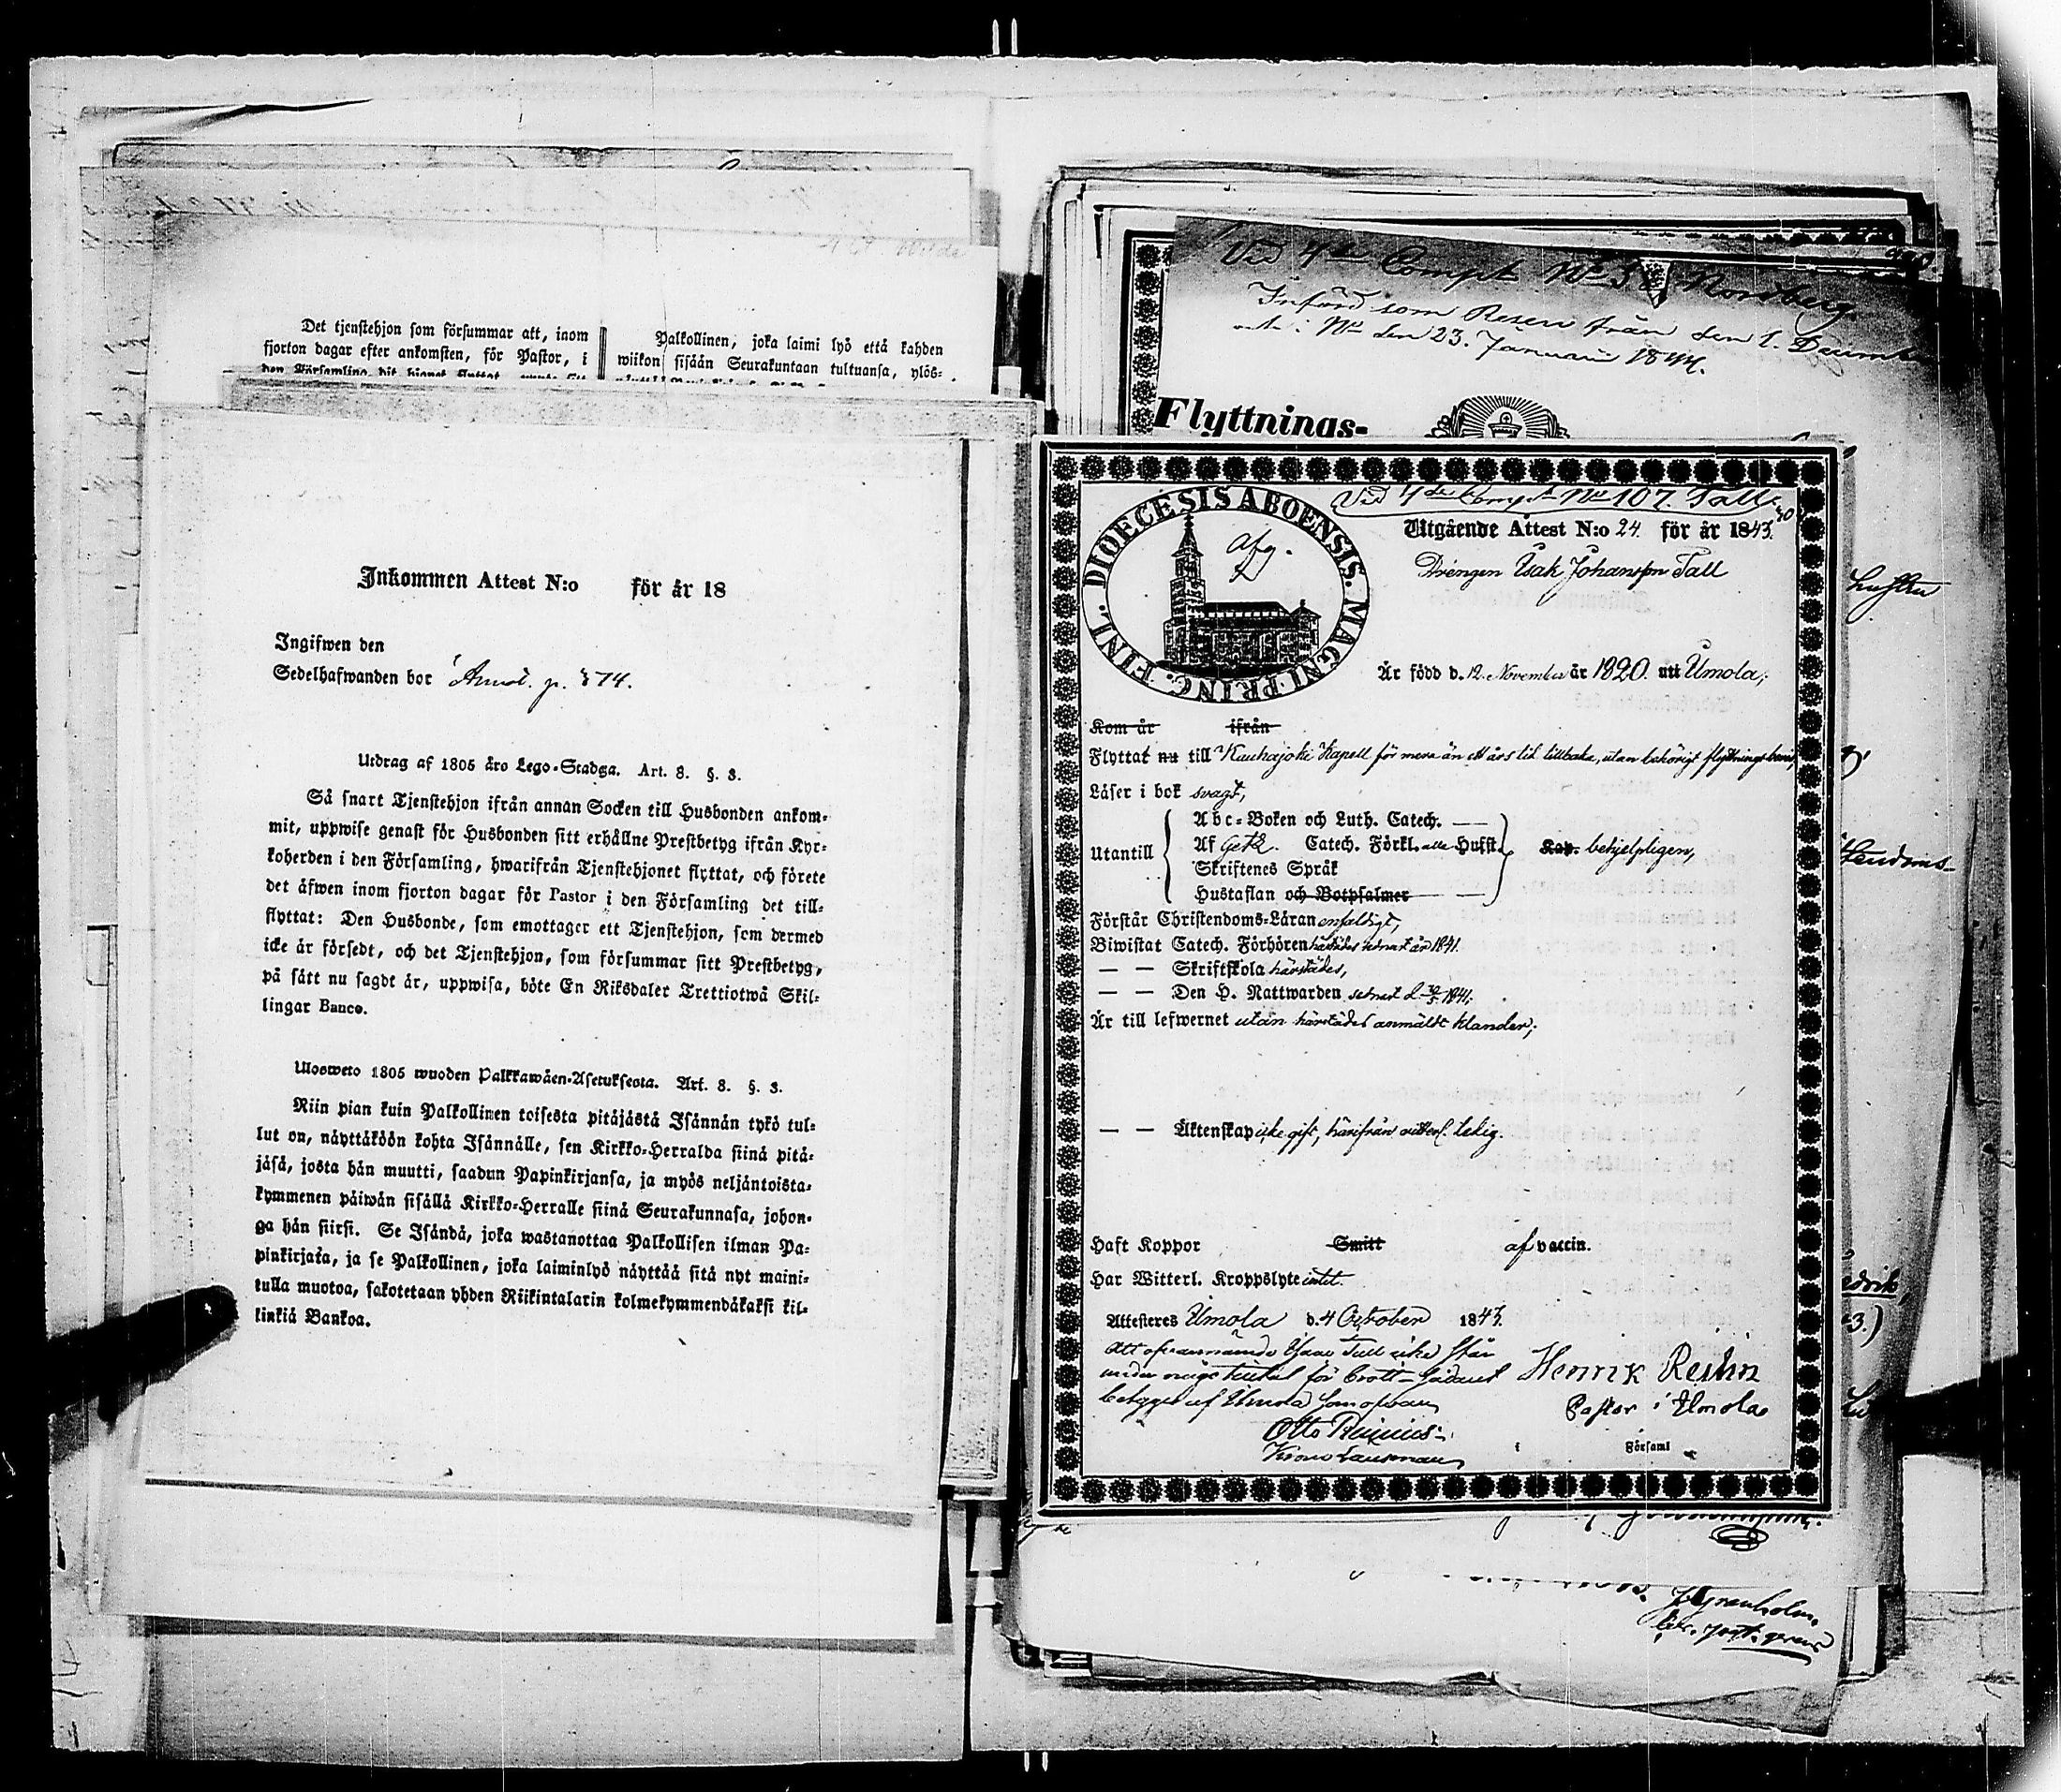 Det tjenstehjon som försummar att, inom
fjorton dagar efter ankomsten, för Pastor, i
Palkollinen, joka laimi lyö että kahden
wiikon sisään Seurakuntaan tultuansa, ylös-
Inkommen Attest N:o för år 18
Ingifwen den
Sedelhafwanden bor Annot. p. 574.
Utdrag af 1805 års Lego-Stadga. Art. 8. §. 3.
Så snart Tjenstehjon ifrån annan Socken till Husbonden ankom-
mit, uppwise genast för Husbonden sitt erhållne Prestbetyg ifrån Kyr-
koherden i den Församling, hwarifrån Tjenstehjonet flyttat, och förete
det äfwen inom fjorton dagar för Pastor i den Församling det till-
flyttat: Den Husbonde, som emottager ett Tjenstehjon, som dermed
icke är försedt, och det Tjenstehjon, som försummar sitt Prestbetyg,
på sätt nu sagdt är, uppwisa, böte En Riksdaler Trettiotwå Skil-
lingar Banco.
Ulosweto 1805 wuoden Palkkawäen-Asetuksesta. Art. 8. §. 3.
Niin pian kuin Palkollinen toisesta pitäjästä Isännän tykö tul-
lut on, näyttäköön kohta Isännälle, sen Kirkko-Herralda siinä pitä-
jäsä, josta hän muutti, saadun Papinkirjansa, ja myös neljäntoista-
kymmenen päiwän sisällä Kirkko-Herralle siinä Seurakunnasa, johon-
ga hän siirsi. Se Isändä, joka wastanottaa Palkollisen ilman Pa-
pinkirjata, ja se Palkollinen, joka laiminlyö näyttää sitä nyt maini-
tulla muotoa, sakotetaan yhden Riikintalarin kolmekymmendäkaksi kil-
linkiä Bankoa.
Vid 4de Compt No 58 Nordberg
Införd som Reserv från den 1. 
den 23. Januari 1844.
Flyttnings-
Vid 4de Compt No 107. Tall
DIOECESIS ABOENSIS. MAGNI PRINC. FINL.
afg.
Utgående Attest N:o 24. för år 1843.
Drengen Isak Johansson Tall
Är född d. 12. November år 1820. uti Ilmola;
Kom år ifrån
Flyttat nu till Kauhajoki Kapell för mera än ett års tid tillbaka, utan behörigt flyttningsbevis,
Läser i bok svagt,
Utantill
Abc-Boken och Luth. Catech. —
Af Catech. Förkl. Hufst.
Skriftenes Språk
Hustaflan och Botpsalmer —
Kap. behjelpligen,
Förstår Christendoms-Läran enfaldigt,
Biwistat Catech. Förhören härstädes sednast år 1841.
— — Skriftskola härstädes,
— — Den H. Nattwarden sednast d. 30/5 1841;
Är till lefwernet utan härstädes anmäldt klander;
— — Äktenskap icke gift, härifrån witterl. ledig.
Haft Koppor Smitt af vaccin.
Har Witterl. Kroppslyte intet.
Attesteres Ilmola d. 4 October 1843.
Att ofvannämnde Isaac Tall icke står
under något tilltal för brott – sådant
betygas af Ilmola som ofvan
Otto Reinius
Krono Länsman
Henrik Reihn
Pastor i Ilmola
Församl